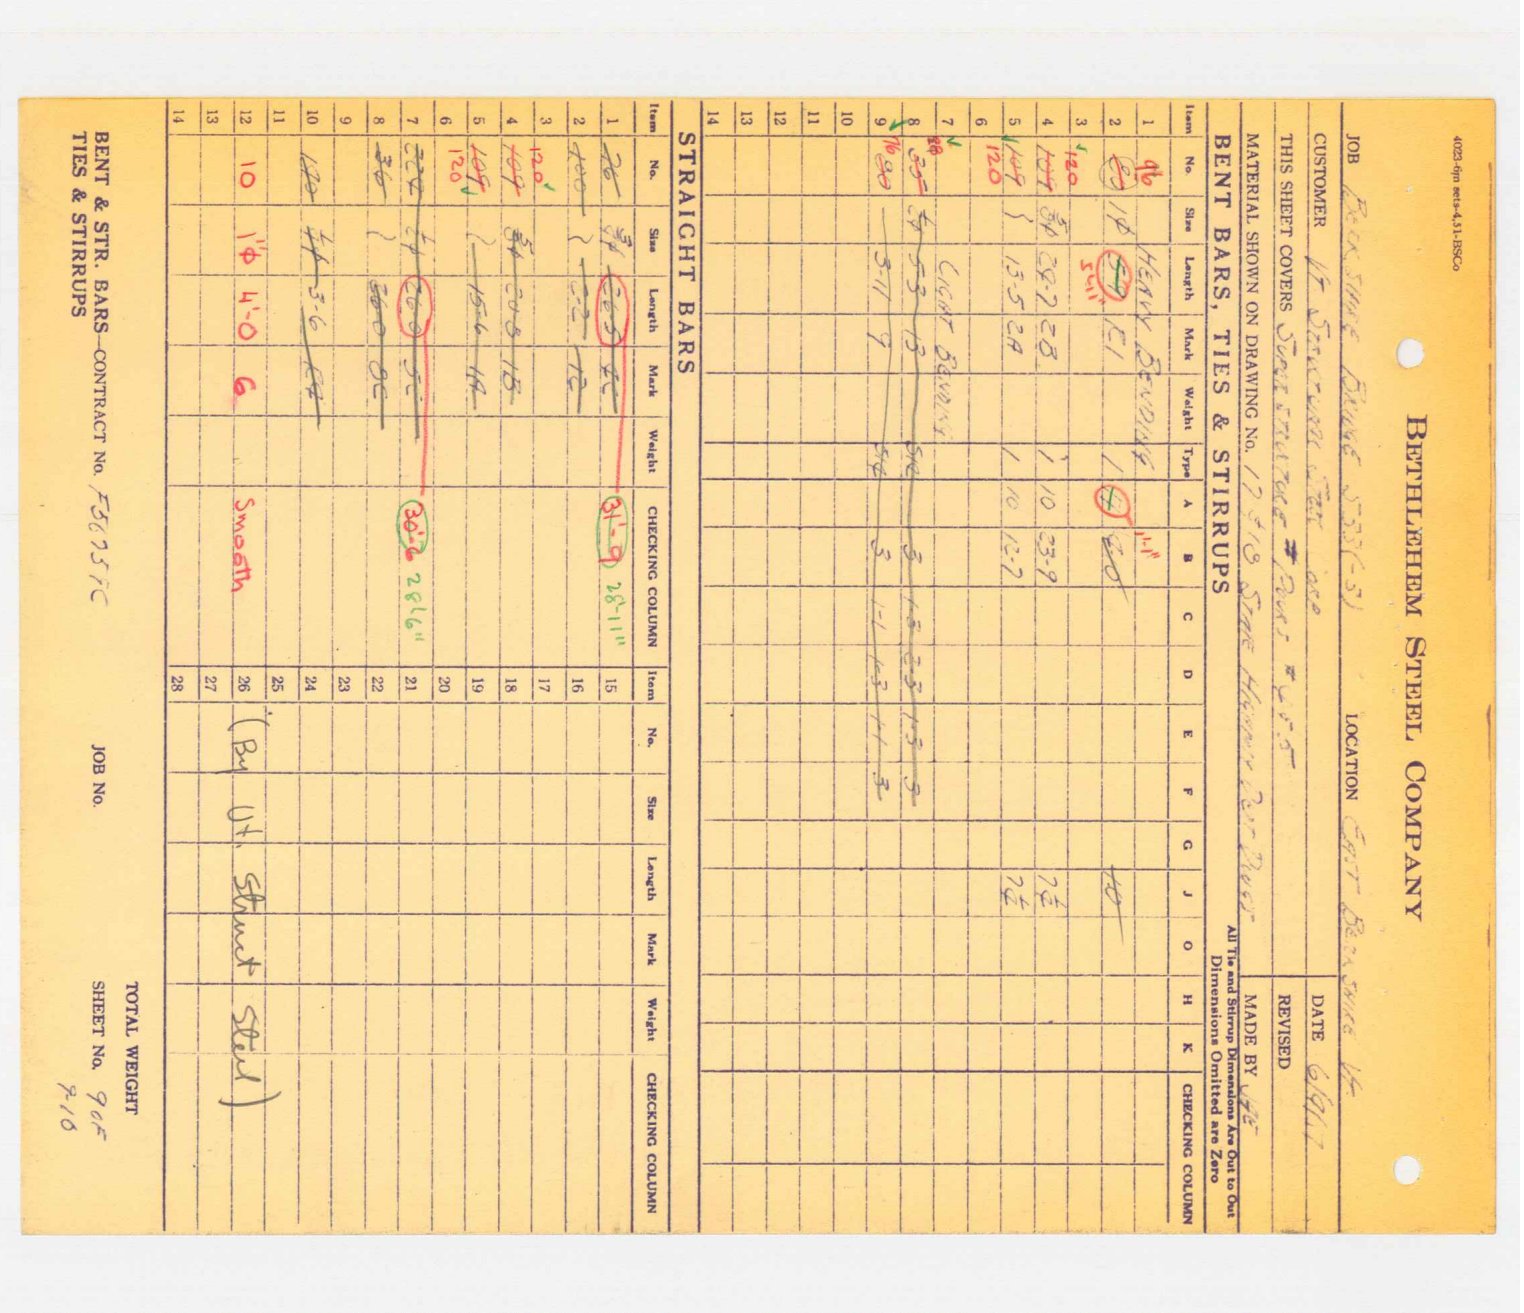 4023-6m sets-4,51-BSCo
BETHLEHEM STEEL COMPANY
JOB BERKSHIRE BRIDGE S 331(3) LOCATION EAST BERKSHIRE Vt
CUSTOMER Vt STRUCTURAL STEEL CORP DATE 6/9/67
THIS SHEET COVERS SUPERSTRUCTURE POURS # 4 & 5 REVISED
MATERIAL SHOWN ON DRAWING No. 17 & 18 STATE HIGHWAY DEPT MADE BY
BENT BARS, TIES & STIRRUPS
All Tie and Stirrup Dimensions Are Out to Out
Dimensions Omitted are Zero
Item No. Size Length Mark Weight Type A B C D E F G J O H K CHECKING COLUMN
1 96 HEAVY BENDING 1'-1"
2 80 1ϕ 5'-11" R1 1 10
3 120
4 109 5ϕ 24-7 2B 1 10 23-9 7½
5 109 120 } 13-5 2A 1 10 12-7 7½
6
7 88 LIGHT BENDING
8 35 4ϕ 5-3 13 S4 3 1-3 2-3 1-3 3
9 96 80 3-11 9 S4 3 1-1 1-3 1-1 3
10
11
12
13
14
STRAIGHT BARS
Item No. Size Length Mark Weight CHECKING COLUMN Item No. Size Length Mark Weight CHECKING COLUMN
1 26 31'-9 28'-11" 15
2 100 16
3 120 17
4 109 5ϕ 20-8 1B 18
5 109 120 15-6 1A 19
6 20
7 4ϕ 30'-6 28'6" 21
8 36 22
9 23
10 4ϕ 3-6 24
11 25
12 10 1"ϕ 4'-0 6 Smooth 26 (By Vt. Struct Steel)
13 27
14 28
TOTAL WEIGHT
BENT & STR. BARS—CONTRACT No. JOB No. SHEET No. 9 OF
TIES & STIRRUPS 9-10